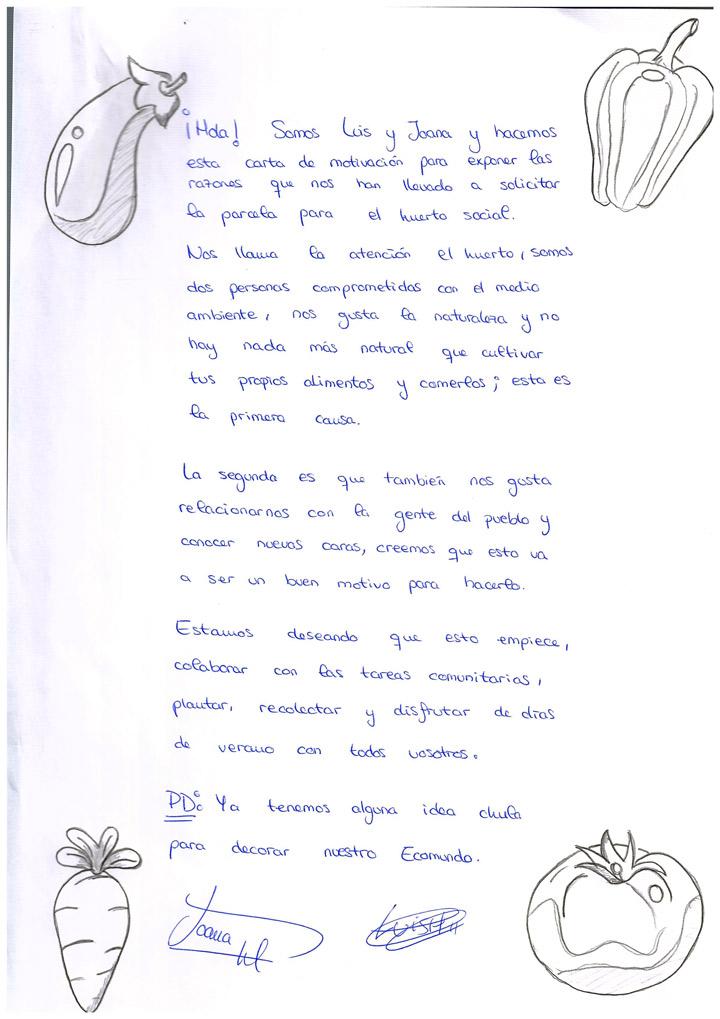 ¡Hola! Somos Luis y Joana y hacemos
esta carta de motivación para exponer las
razones que nos han llevado a solicitar
la parcela para el huerto social.
Nos llama la atención el huerto, somos
dos personas comprometidas con el medio
ambiente, nos gusta la naturaleza y no
hay nada más natural que cultivar
tus propios alimentos y comerlos; esta es
la primera causa.
La segunda es que también nos gusta
relacionarnos con la gente del pueblo y
conocer nuevas caras, creemos que esto va
a ser un buen motivo para hacerlo.
Estamos deseando que esto empiece,
colaborar con las tareas comunitarias,
plantar, recolectar y disfrutar de días
de verano con todos vosotros.
PD: Ya tenemos alguna idea chula
para decorar nuestro Ecomundo.
Joana